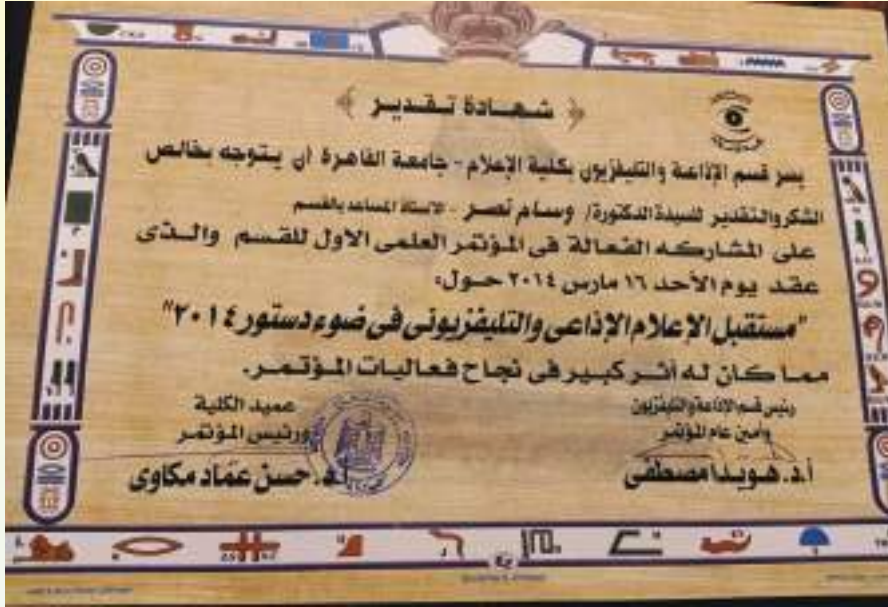 ﴿ شهادة تقدير ﴾
يسر قسم الإذاعة والتليفزيون بكلية الإعلام - جامعة القاهرة أن يتوجه بخالص
الشكر والتقدير للسيدة الدكتورة/ وسام نصر - الاستاذ المساعد بالقسم
على المشاركه الفعالة فى المؤتمر العلمى الاول للقسم والذى
عقد يوم الأحد ١٦ مارس ٢٠١٤ حول:
"مستقبل الإعلام الإذاعى والتليفزيونى فى ضوء دستور ٢٠١٤"
مما كان له أثر كبير فى نجاح فعاليات المؤتمر.
رئيس قسم الإذاعة والتليفزيون
وأمين عام المؤتمر
أ.د. هويدا مصطفى
عميد الكلية
ورئيس المؤتمر
أ.د. حسن عماد مكاوى